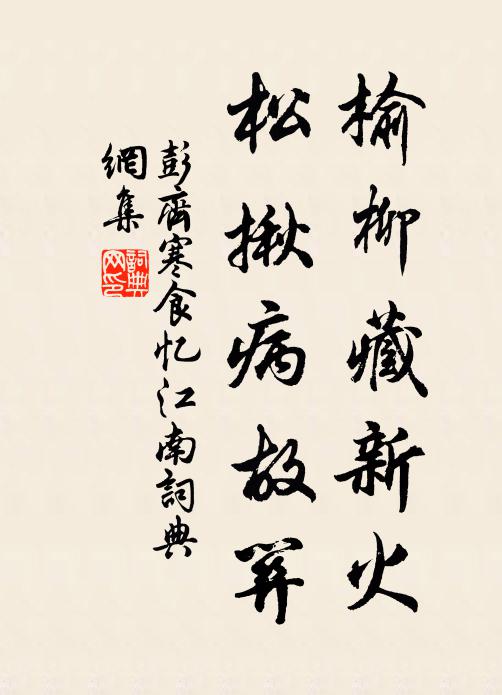 榆柳藏新火
松楸病故
彭齊寒食忆江南詞典
網集
詞典
网印